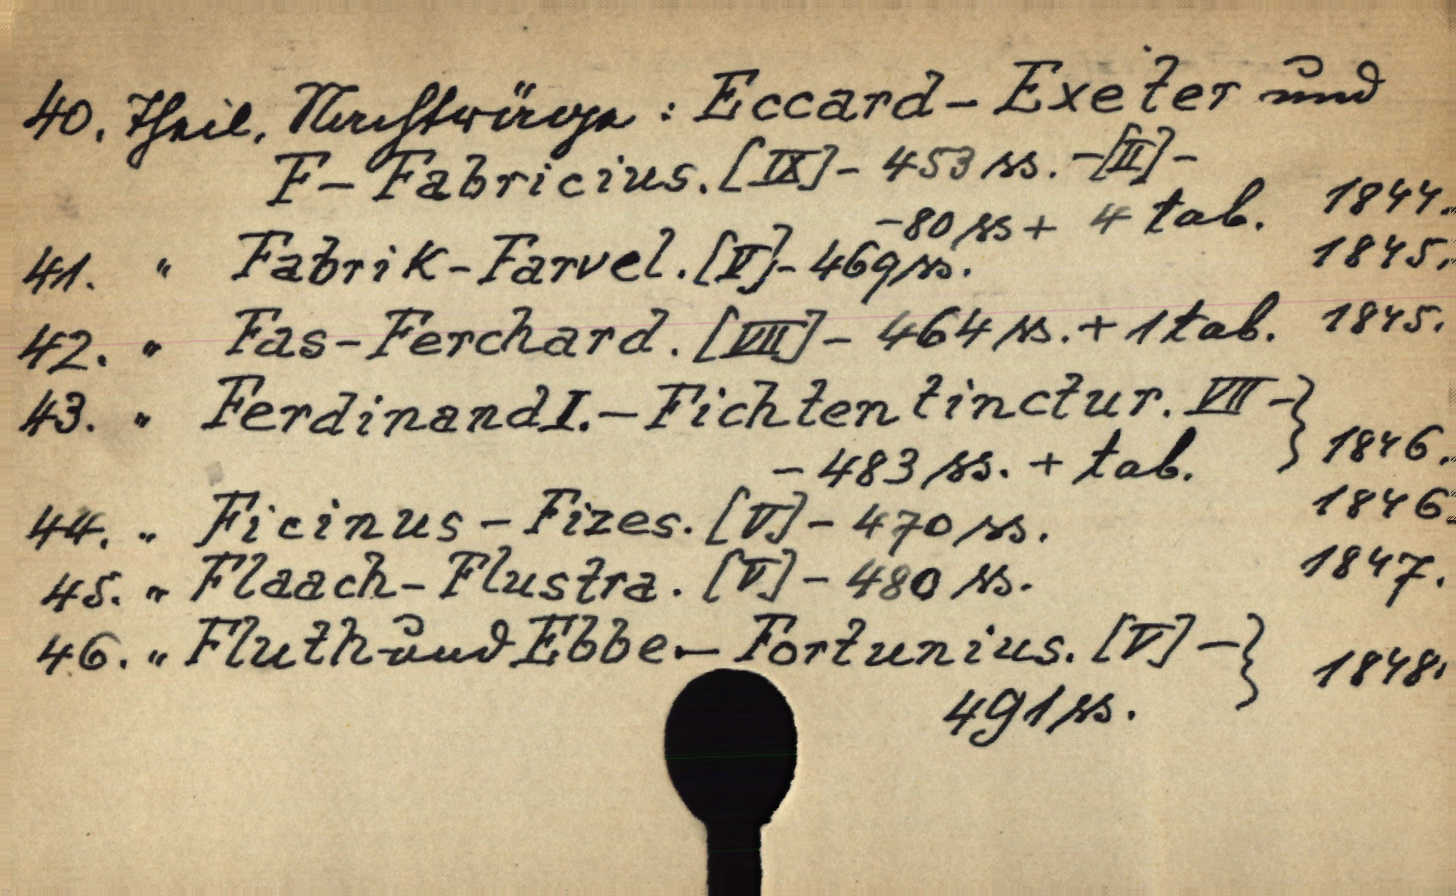 40. Theil. Nachträge : Eccard - Exeter und
F - Fabricius. [IX] - 453 ss. - [II] -
- 80 ss + 4 tab. 1844.
41. " Fabrik - Farvel. [V] - 469 ss. 1845.
42. " Fas - Ferchard. [VII] - 464 ss. + 1 tab. 1845.
43. " Ferdinand I. - Fichtentinctur. VII -
- 483 ss. + tab. 1846.
44. " Ficinus - Fizes. [V] - 470 ss. 1846.
45. " Flaach - Flustra. [V] - 480 ss. 1847.
46. " Fluth und Ebbe - Fortunius. [V] -
491 ss. 1848.